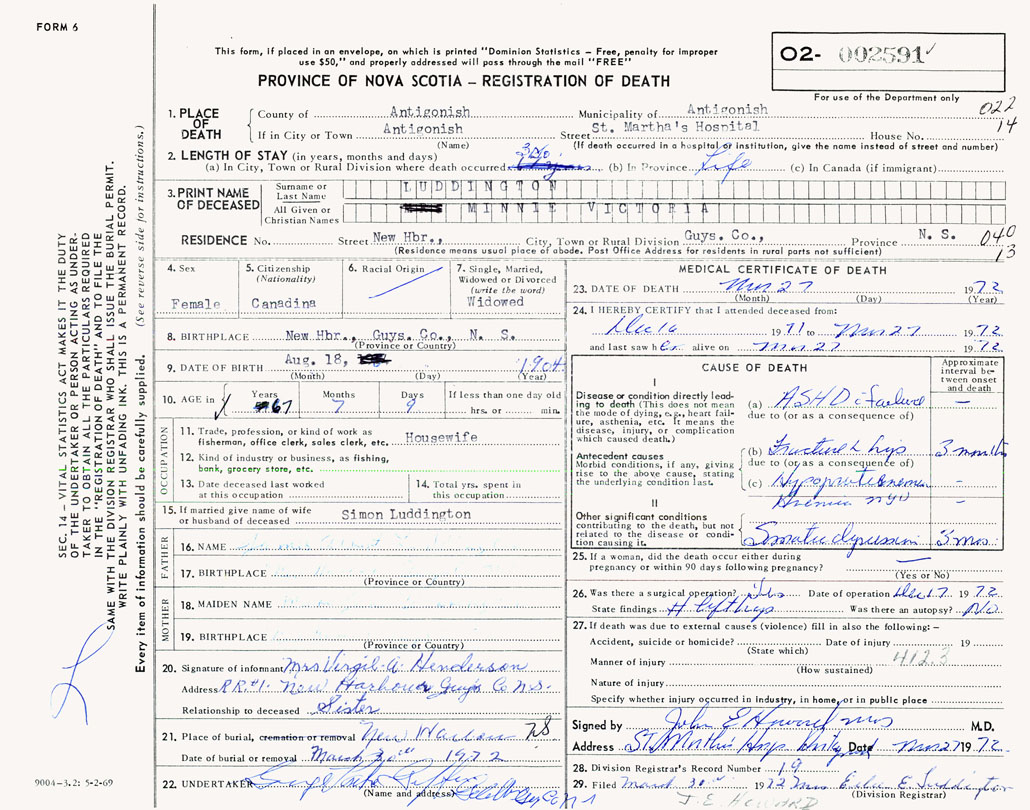 FORM 6
This form, if placed in an envelope, on which is printed "Dominion Statistics – Free, penalty for improper
use $50," and properly addressed will pass through the mail "FREE"
PROVINCE OF NOVA SCOTIA – REGISTRATION OF DEATH
O2- 002591
For use of the Department only
022
14
1. PLACE OF DEATH
County of Antigonish Municipality of Antigonish
If in City or Town Antigonish Street St. Martha's Hospital House No.
(Name) (If death occurred in a hospital or institution, give the name instead of street and number)
2. LENGTH OF STAY (in years, months and days)
(a) In City, Town or Rural Division where death occurred (b) In Province Life (c) In Canada (if immigrant)
3. PRINT NAME OF DECEASED
Surname or Last Name LUDDINGTON
All Given or Christian Names MINNIE VICTORIA
RESIDENCE No. Street New Hbr., City, Town or Rural Division Guys. Co., Province N. S.
(Residence means usual place of abode. Post Office Address for residents in rural parts not sufficient)
040
13
4. Sex
Female
5. Citizenship
(Nationality)
Canadina
6. Racial Origin
7. Single, Married,
Widowed or Divorced
(write the word)
Widowed
8. BIRTHPLACE New Hbr., Guys. Co., N. S.
(Province or Country)
9. DATE OF BIRTH Aug. 18, 1904
(Month) (Day) (Year)
10. AGE in Years Months Days If less than one day old
67 7 9 hrs. or min.
OCCUPATION
11. Trade, profession, or kind of work as
fisherman, office clerk, sales clerk, etc. Housewife
12. Kind of industry or business, as fishing,
bank, grocery store, etc.
13. Date deceased last worked
at this occupation
14. Total yrs. spent in
this occupation
15. If married give name of wife
or husband of deceased Simon Luddington
FATHER
16. NAME
17. BIRTHPLACE
(Province or Country)
MOTHER
18. MAIDEN NAME
19. BIRTHPLACE
(Province or Country)
20. Signature of informant Mrs Virgil A. Henderson
Address R.R.#1. New Harbour Guys Co N.S.
Relationship to deceased Sister
21. Place of burial, cremation or removal New 28
Date of burial or removal March 30th 1972
22. UNDERTAKER
(Name and address)
MEDICAL CERTIFICATE OF DEATH
23. DATE OF DEATH Mar 27 1972
(Month) (Day) (Year)
24. I HEREBY CERTIFY that I attended deceased from:
Dec 16 1971 to Mar 27 1972
and last saw her alive on Mar 27 1972
CAUSE OF DEATH
Approximate interval between onset and death
I
Disease or condition directly leading to death (This does not mean the mode of dying, e.g., heart failure, asthenia, etc. It means the disease, injury, or complication which caused death.)
(a) ASHD - Failure –
due to (or as a consequence of)
Antecedent causes
Morbid conditions, if any, giving rise to the above cause, stating the underlying condition last.
(b) Fracture L hip 3 months
due to (or as a consequence of)
(c) Hypoproteinemia –
Anemia NYD –
II
Other significant conditions
contributing to the death, but not related to the disease or condition causing it.
depression 3 mos.
25. If a woman, did the death occur either during
pregnancy or within 90 days following pregnancy? –
(Yes or No)
26. Was there a surgical operation? Yes Date of operation Dec 17 1972
State findings Was there an autopsy? No
27. If death was due to external causes (violence) fill in also the following: –
Accident, suicide or homicide? Date of injury 19
(State which)
Manner of injury 412.3
(How sustained)
Nature of injury
Specify whether injury occurred in industry, in home, or in public place
Signed by John E Howard M.D.
Address St. Martha's Hosp Date Mar 27 1972
28. Division Registrar's Record Number 19
29. Filed March 30th 1972 Mrs E. Luddington
(Division Registrar)
J. E. HOWARD
SEC. 14 – VITAL STATISTICS ACT MAKES IT THE DUTY
OF THE UNDERTAKER OR PERSON ACTING AS UNDER-
TAKER TO OBTAIN ALL THE PARTICULARS REQUIRED
IN THE "REGISTRATION OF DEATH" AND TO FILE THE
SAME WITH THE DIVISION REGISTRAR WHO SHALL ISSUE THE BURIAL PERMIT.
WRITE PLAINLY WITH UNFADING INK. THIS IS A PERMANENT RECORD.
Every item of information should be carefully supplied. (See reverse side for instructions.)
9004–3.2: 5-2-69